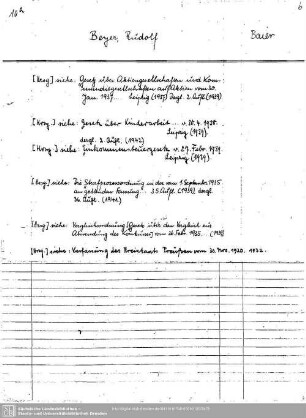 16h
6
Beyer, Rudolf
Baier
[Hrsg.] siehe: Gesetz über Aktiengesellschaften und Kom-
manditgesellschaften auf Aktien vom 30.
Jan. 1937. Leipzig (1937) desgl. 2. Aufl. (1939)
[Hrsg.] siehe: Gesetz über Kinderarbeit .. v. 30. 4. 1938.
Leipzig (1939).
desgl. 2. Aufl. (1942)
[Hrsg.] siehe: Einkommensteuergesetz v. 27. Febr. 1939.
Leipzig (1939)
[Hrsg.] siehe: Die Strafprozessordnung in der vom 1. September 1935
an geltenden Fassung. 35. Aufl. (1939) desgl.
36. Aufl. (1942)
[Hrsg.] siehe: Vergleichsordnung [Gesetz über den Vergleich zur
Abwendung des Konkurses] vom 26. Febr. 1935. (1938)
[Hrsg.] siehe: Verfassung des Freistaats Preußen vom 30. Nov. 1920. 1922.